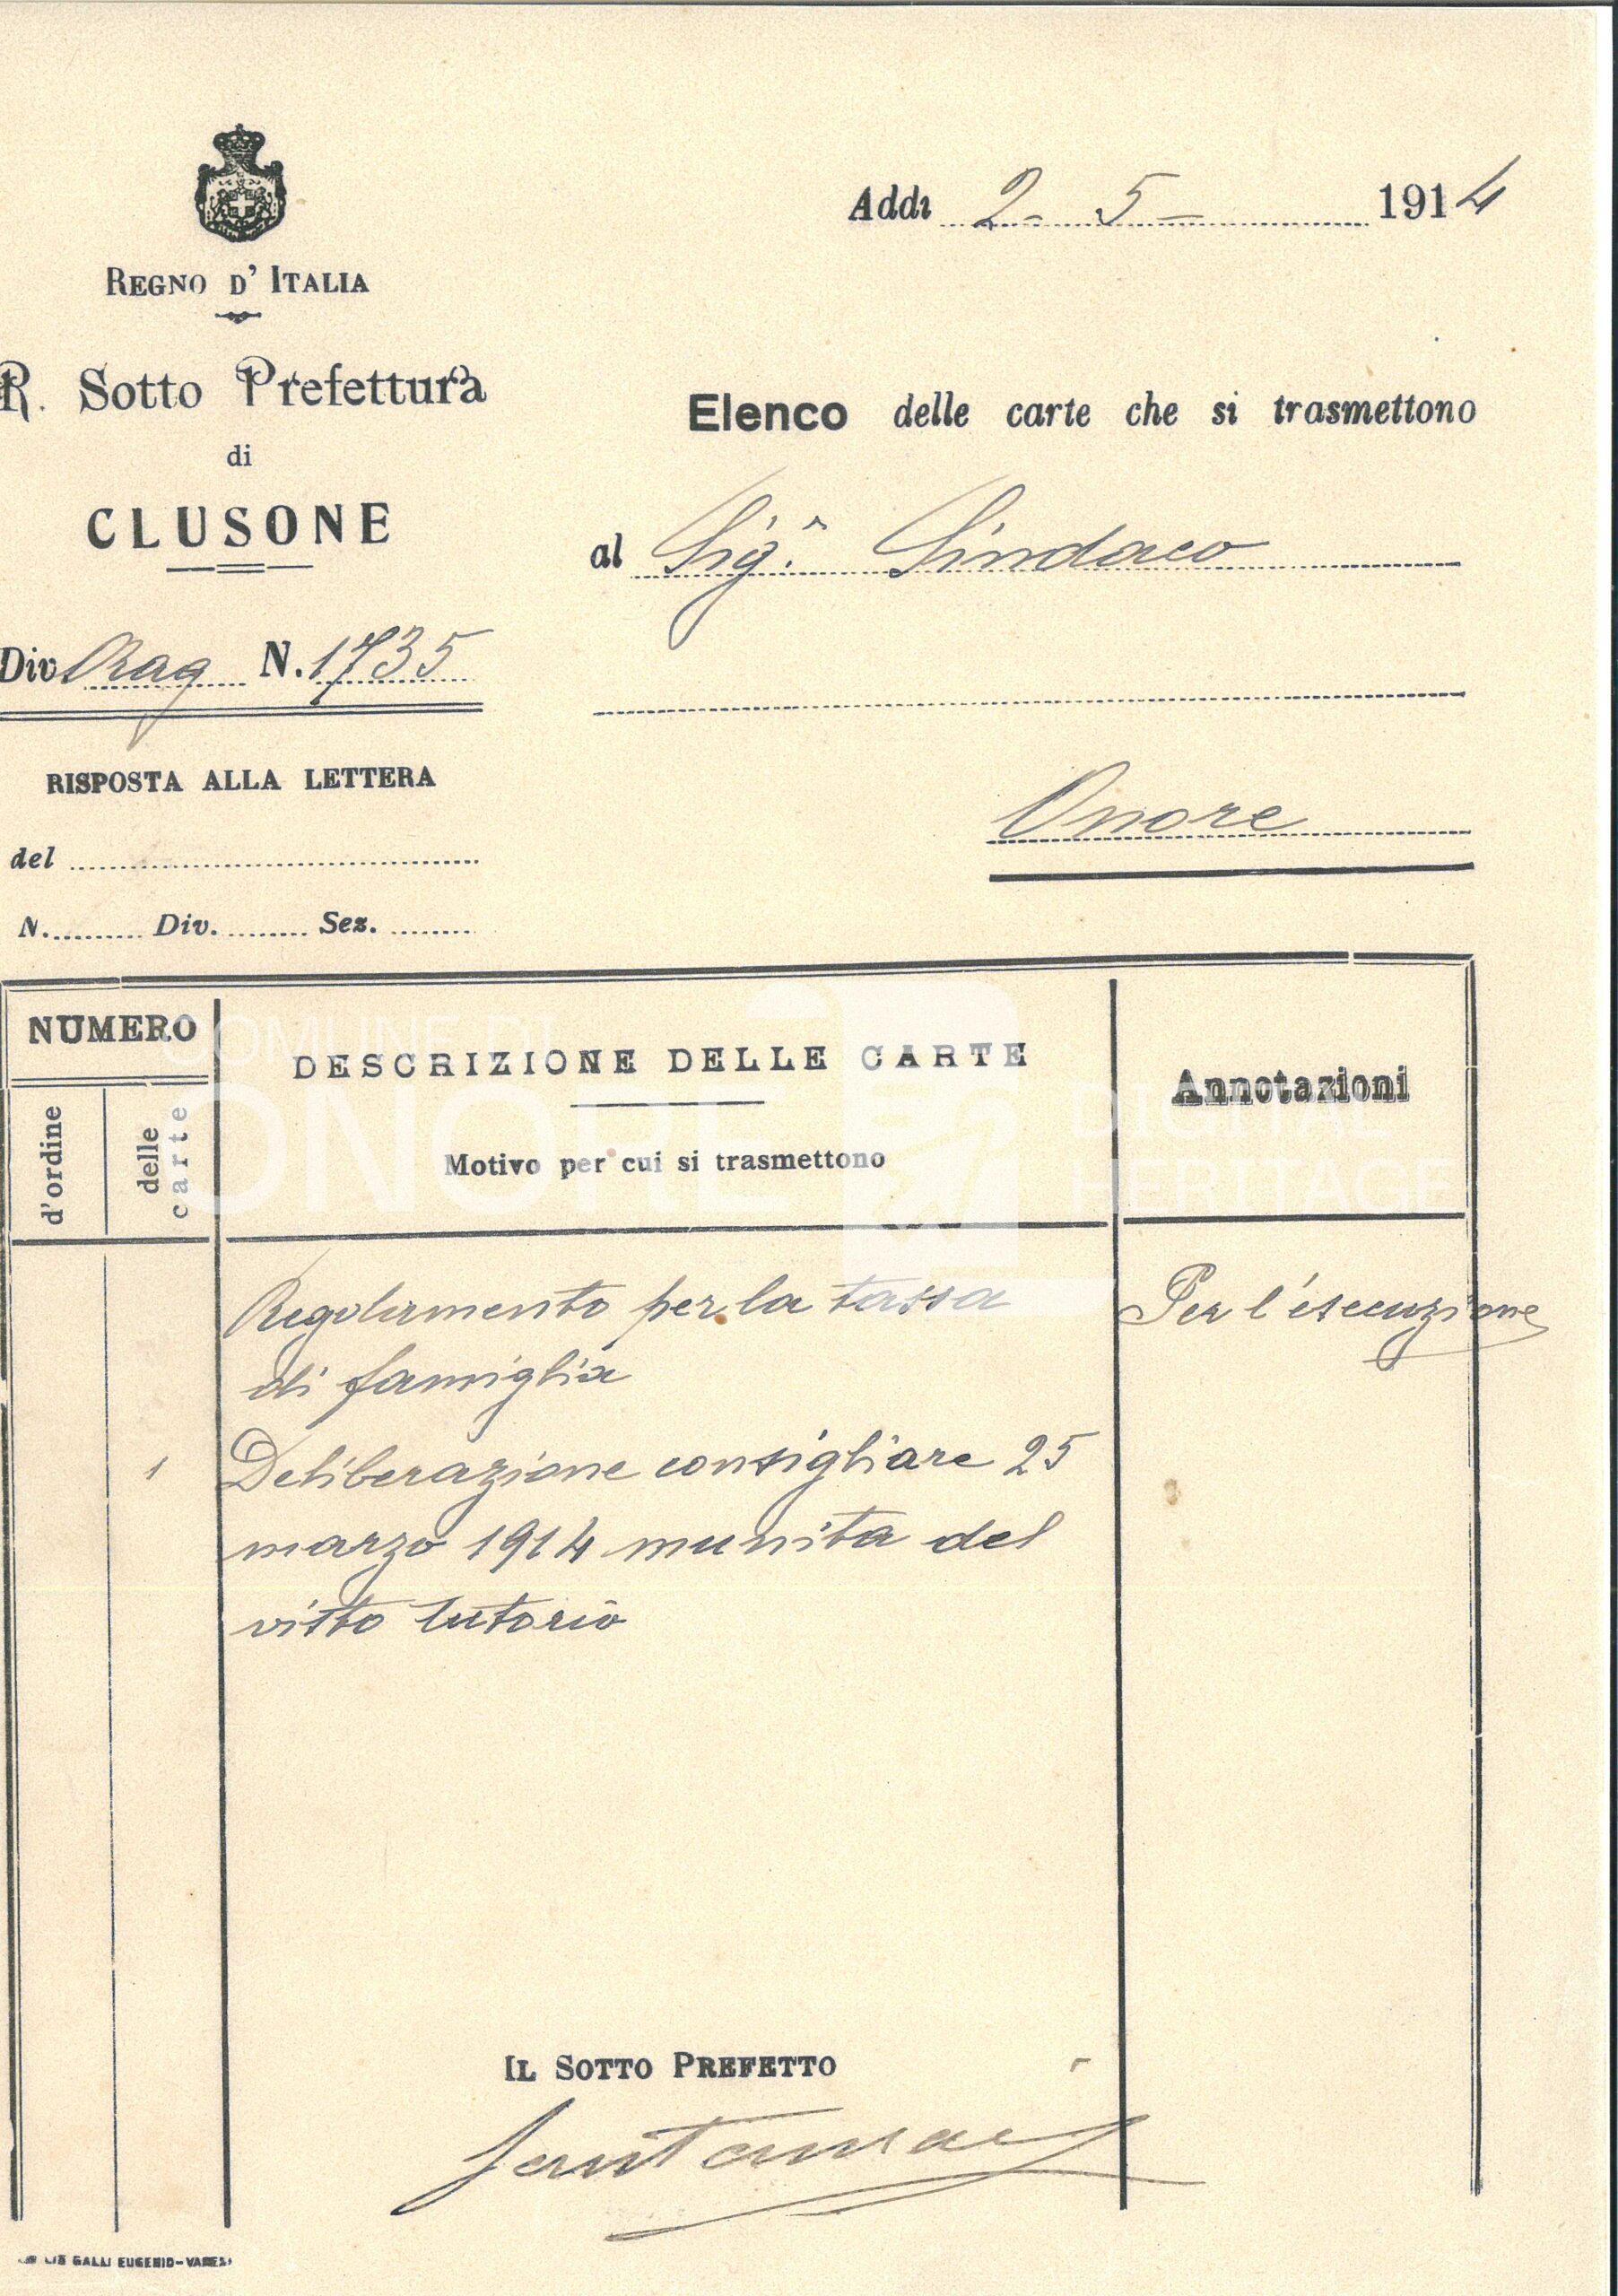 REGNO D' ITALIA
R. Sotto Prefettura
di
CLUSONE
Div Rag N. 1735
RISPOSTA ALLA LETTERA
del
N. Div. Sez.
Addi 2 - 5 - 1914
Elenco delle carte che si trasmettono
al Sigr. Sindaco
Onore
NUMERO
d'ordine
delle carte
DESCRIZIONE DELLE CARTE
Motivo per cui si trasmettono
Annotazioni
COMUNE DI
ONORE
DIGITAL
HERITAGE
Regolamento per la tassa
di famiglia
1 Deliberazione consigliare 25
marzo 1914 munita del
visto tutorio
Per l'esecuzione
IL SOTTO PREFETTO
GALLI EUGENIO-VARESE